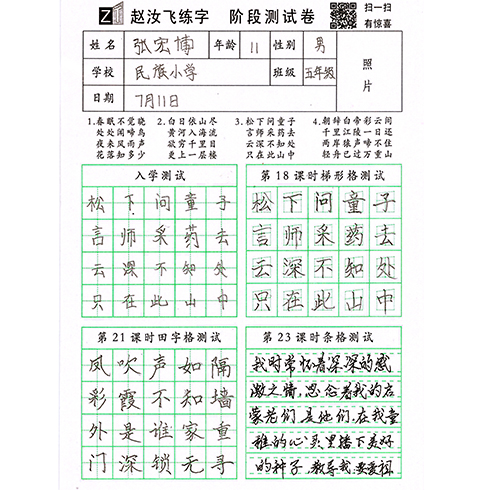 赵汝飞练字 阶段测试卷
扫一扫
有惊喜
姓名 张宏博 年龄 11 性别 男
学校 民族小学 班级 五年级
照片
日期 7月11日
1.春眠不觉晓
处处闻啼鸟
夜来风雨声
花落知多少
2.白日依山尽
黄河入海流
欲穷千里目
更上一层楼
3.松下问童子
言师采药去
云深不知处
只在此山中
4.朝辞白帝彩云间
千里江陵一日还
两岸猿声啼不住
轻舟已过万重山
入学测试
松下问童子
言师采药去
云深不知处
只在此山中
第18课时梯形格测试
松下问童子
言师采药去
云深不知处
只在此山中
第21课时田字格测试
凤吹声如隔
彩霞不知墙
外是谁家重
门深锁无寻
第23课时条格测试
我时常怀着深深的感
激之情,思念着我的启
蒙老们,是他们,在我童
稚的心头里播下美好
的种子,教导我,要爱祖